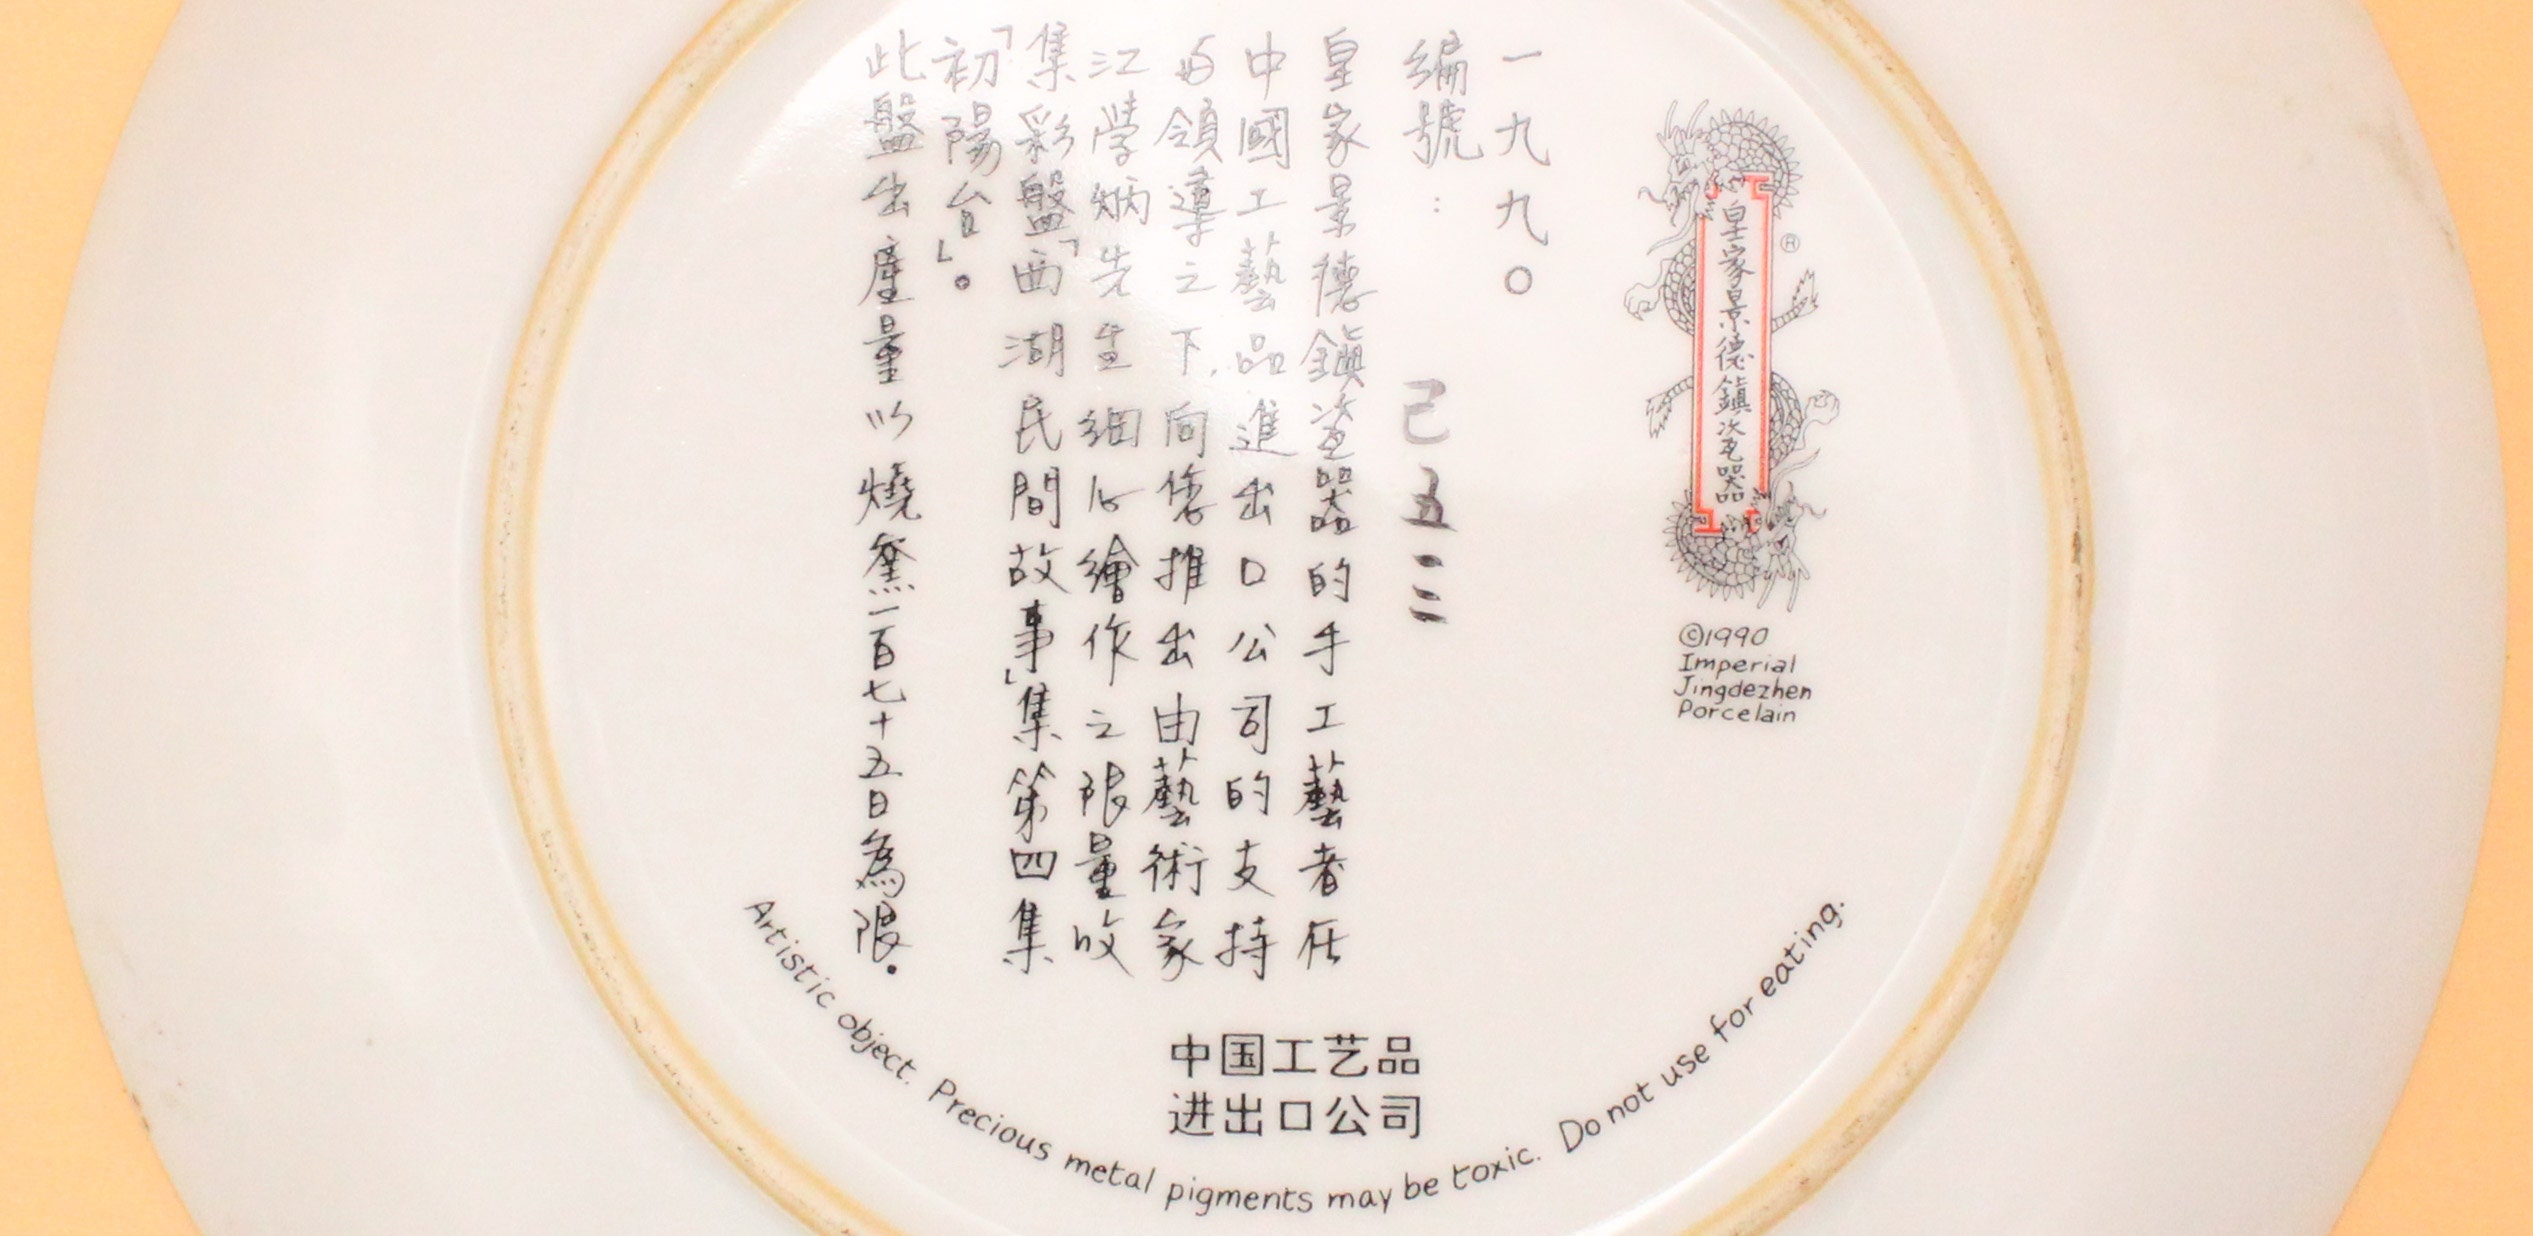 皇家景德鎮瓷器
®
©1990
Imperial
Jingdezhen
Porcelain
一九九〇
編號： 己五二三
皇家景德鎮瓷器的手工藝者在
中國工藝品進出口公司的支持
與領導之下，向您推出由藝術家
江學炳先生細心繪作之限量收
集彩盤「西湖民間故事」集第四集
「初陽台」。
此盤出產量以燒窯一百七十五日為限。
中国工艺品
进出口公司
Artistic object. Precious metal pigments may be toxic. Do not use for eating.